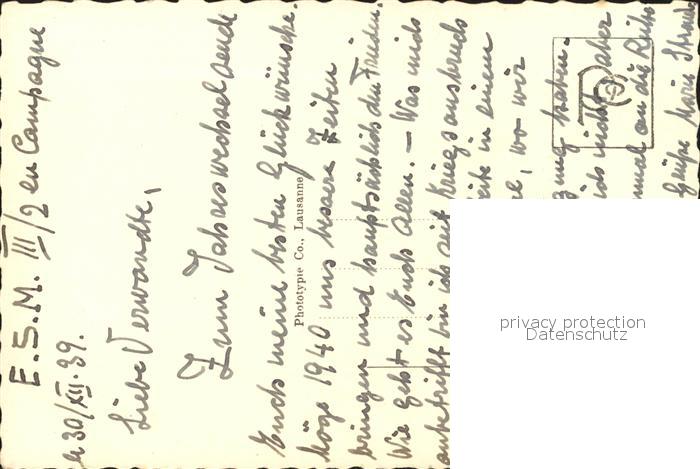 E.S.M. III/2 en Campagne
le 30/XII.39.
Liebe Verwandte,
Zum Jahreswechsel sende
Euch meine besten Glückwünsche.
Möge 1940 uns bessere Zeiten
bringen und hauptsächlich den Frieden.
Wie geht es Euch allen. – Was mich
anbetrifft bin ich seit Kriegsausbruch
in einem
wo wir
haben.
nicht
mal an die Reihe
Grüße Marie
Phototypie Co., Lausanne
privacy protection
Datenschutz